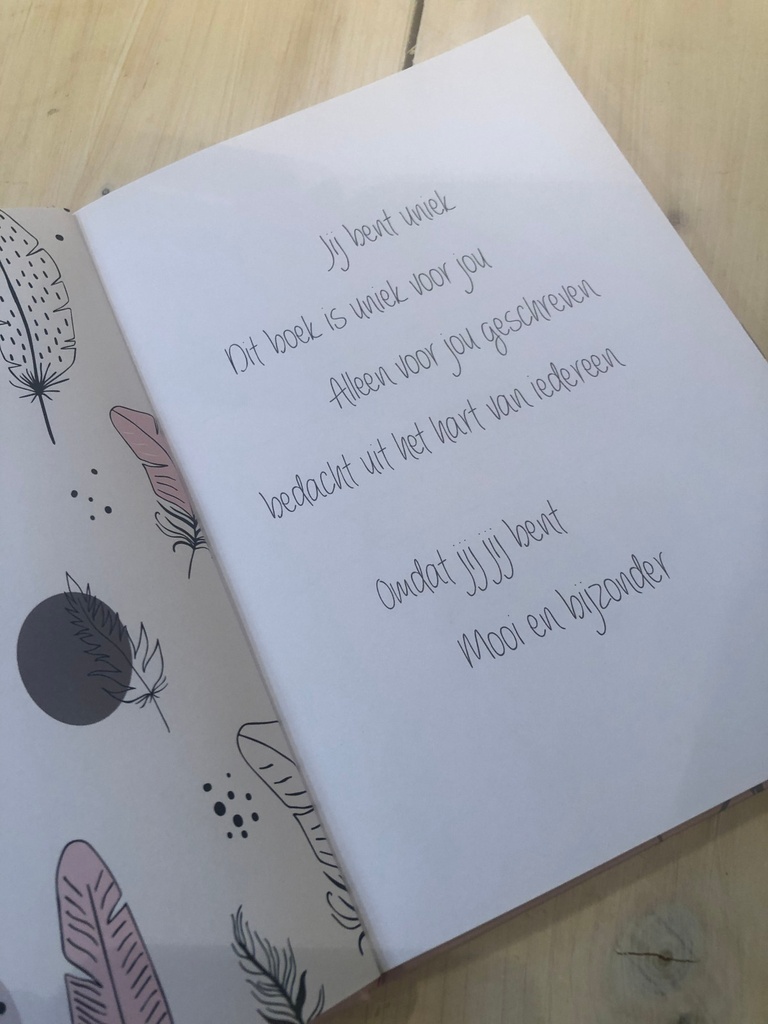 Jij bent uniek
Dit boek is uniek voor jou
Alleen voor jou geschreven
bedacht uit het hart van iedereen
Omdat jij jij bent
Mooi en bijzonder